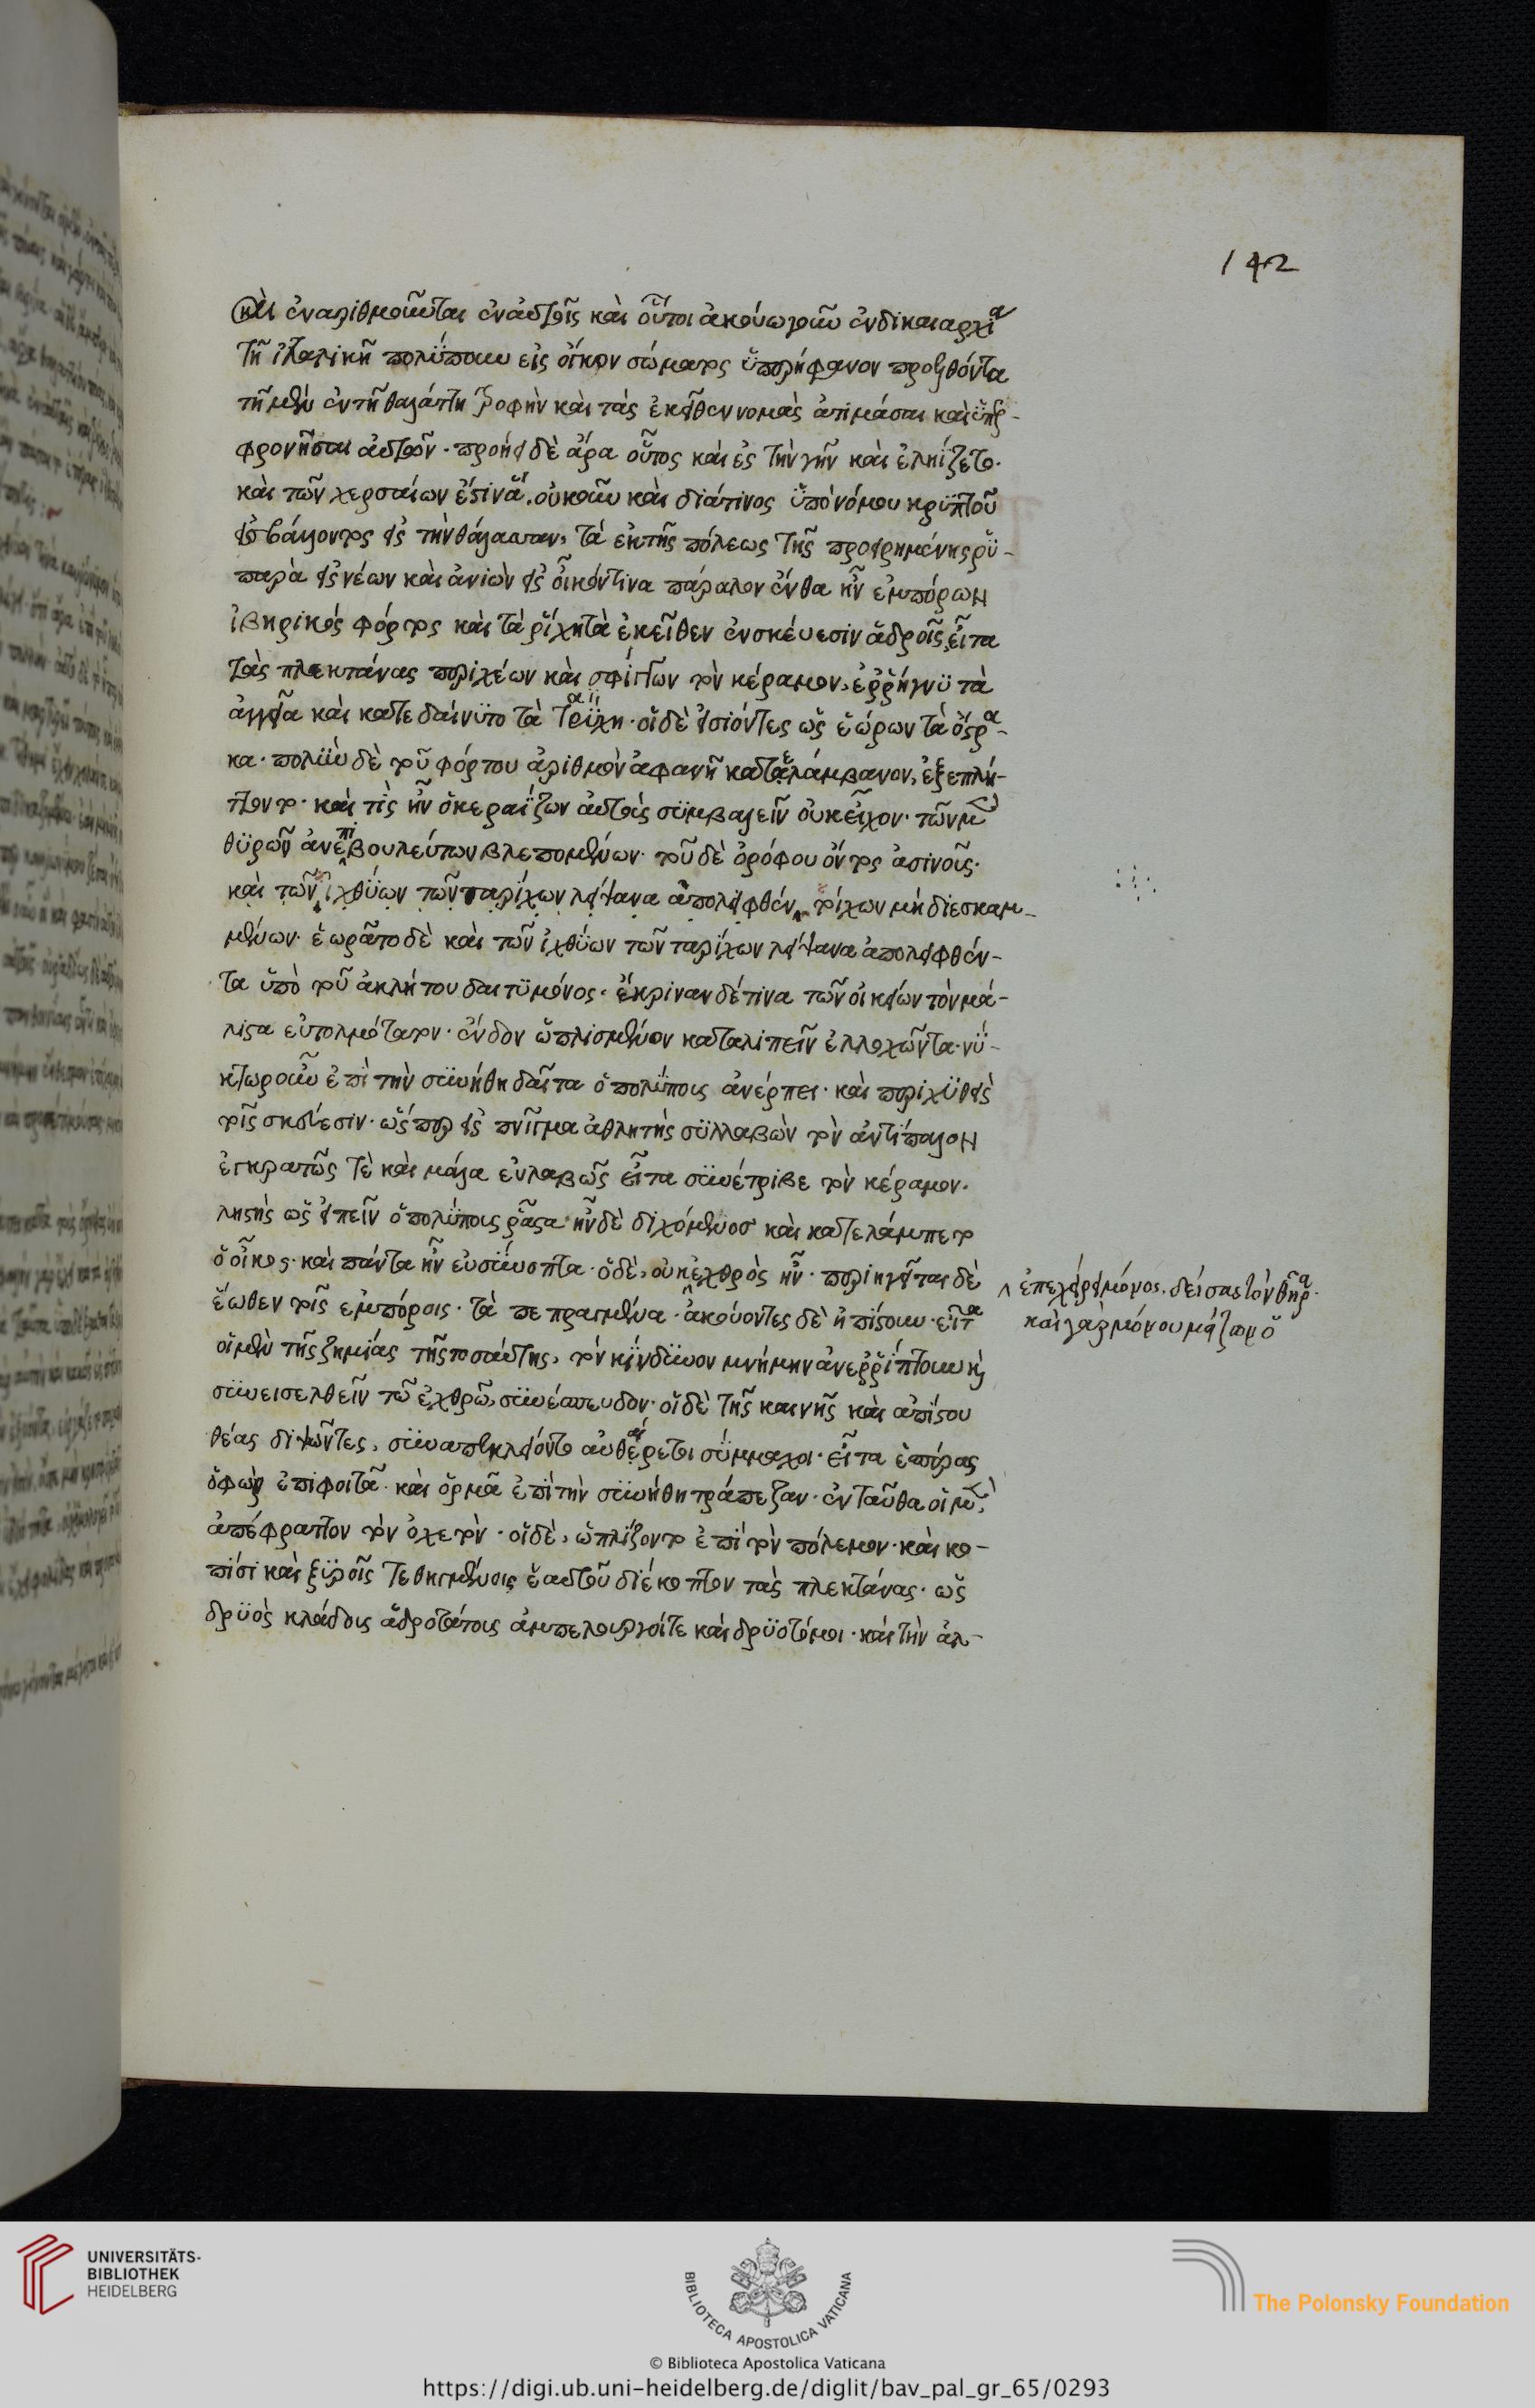 142
καὶ ἐναριθμοῦνται ἐν αὐτοῖς καὶ οὗτοι ἀκούω γοῦν ἐν δικαιαρχία
τῇ ἰταλικῇ πολύπουν εἰς ὄγκον σώματος ὑπερήφανον προελθόντα
τὴν μὲν ἐν τῇ θαλάττῃ τροφὴν καὶ τὰς ἐκεῖθεν νομὰς ἀτιμάσαι καὶ ὑπερ-
φρονῆσαι αὐτῶν. προήει δὲ ἄρα οὗτος καὶ ἐς τὴν γῆν καὶ ἐληΐζετο.
καὶ τῶν χερσαίων ἔστιν ἅ. οὐκοῦν καὶ διά τινος ὑπονόμου κρυπτοῦ
ἐκβάλλοντος εἰς τὴν θάλασσαν, τὰ ἐκ τῆς πόλεως τῆς προειρημένης ῥυ-
παρὰ εἰσνέων καὶ ἀνιὼν εἰς οἶκόν τινα πάραλον ἔνθα ἦν ἐμπόρων
ἰβηρικός φόρτος καὶ τὰ ῥίχη τὰ ἐκεῖθεν ἐν σκεύεσιν ἁδροῖς, εἶτα
τὰς πλεκτάνας περιχέων καὶ σφίγγων τὸν κέραμον, ἐρρήγνυ τὰ
ἀγγεῖα καὶ κατεδαίνυτο τὰ ταρίχη. οἱ δὲ εἰσιόντες ὡς ἑώρων τὰ ὄστρα-
κα. πολὺν δὲ τοῦ φόρτου ἀριθμὸν ἀφανῆ κατελάμβανον, ἐξεπλή-
ττοντο. καὶ τίς ἦν ὁ κεραΐζων αὐτοὺς συμβαλεῖν οὐκ εἶχον. τῶν μὲν
θυρῶν ἀνεπιβουλεύτων βλεπομένων. τοῦ δὲ ὀρόφου ὄντος ἀσινοῦς.
καὶ τῶν ἰχθύων τῶν ταρίχων λείψανα ἀπολειφθέν τοίχων μὴ διεσκαμ-
μένων. ἑωρᾶτο δὲ καὶ τῶν ἰχθύων τῶν ταρίχων λείψανα ἀπολειφθέν-
τα ὑπὸ τοῦ ἀκλήτου δαιτυμόνος. ἔκριναν δέ τινα τῶν οἰκείων τὸν μά-
λιστα εὐτολμότατον. ἔνδον ὡπλισμένον καταλιπεῖν ἐλλοχῶντα. νύ-
κτωρ οὖν ἐπὶ τὴν συνήθη δαῖτα ὁ πολύπους ἀνέρπει. καὶ περιχυθεὶς
τοῖς σκεύεσιν. ὥσπερ εἰς πνῖγμα ἀθλητὴς συλλαβὼν τὸν ἀντίπαλον
ἐγκρατῶς τὲ καὶ μάλα εὐλαβῶς εἶτα συνέτριβε τὸν κέραμον.
ληστὴς ὡς εἰπεῖν ὁ πολύπους ῥᾷστα ἦν δὲ διχόμηνος καὶ κατελάμπετο
ὁ οἶκος. καὶ πάντα ἦν εὐσύνοπτα. ὁ δὲ, οὐκ ἐχθρὸς ἦν. περιηγεῖται δὲ
ἕωθεν τοῖς ἐμπόροις. τὰ πεπραγμένα. ἀκούοντες δὲ ἠπίστουν. εἶτα
οἱ μὲν τῆς ζημίας τῆς τοσαύτης, τὸν κίνδυνον μνήμην ἀνερρίπτουν καὶ
συνεισελθεῖν τῷ ἐχθρῷ, συνέσπευδον. οἱ δὲ τῆς καινῆς καὶ ἀπίστου
θέας διψῶντες, συναπεκλείοντο αὐθαίρετοι σύμμαχοι. εἶτα ἑσπέρας
ὁ φὼρ ἐπιφοιτᾷ. καὶ ὁρμᾷ ἐπὶ τὴν συνήθη τράπεζαν. ἐνταῦθα οἱ μὲν,
ἀπέφραττον τὸν ὀχετὸν. οἱ δὲ, ὡπλίζοντο ἐπὶ τὸν πόλεμον. καὶ κο-
πίσι καὶ ξυροῖς τεθηγμένοις ἑαυτοῦ διέκοπτον τὰς πλεκτάνας. ὡς
δρυὸς κλάδοις ἁδροτάτοις ἀμπελουργοίτε καὶ δρυοτόμοι. καὶ τὴν ἀλ-
ἐπεχείρει μόνος. δείσας τὸν θῆρα.
καὶ γὰρ μόνου μείζων ὁ
UNIVERSITÄTS-
BIBLIOTHEK
HEIDELBERG
BIBLIOTECA APOSTOLICA VATICANA
The Polonsky Foundation
© Biblioteca Apostolica Vaticana
https://digi.ub.uni-heidelberg.de/diglit/bav_pal_gr_65/0293